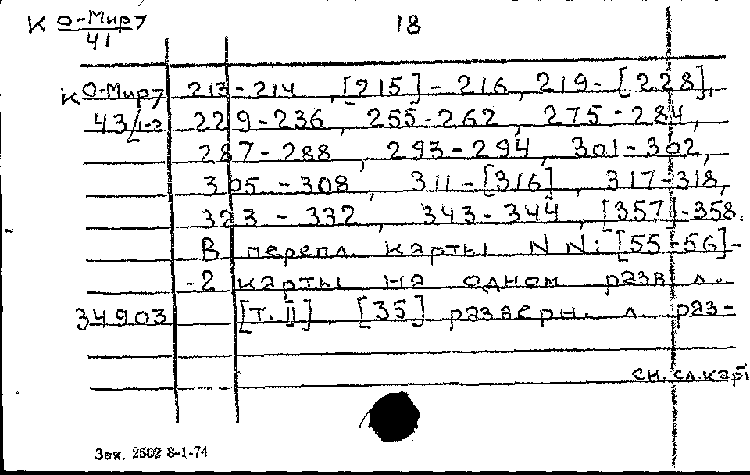 К О-Мир7 18
41
К О-Мир7 213-214, [215]-216, 219-[228],
43/1-2 229-236, 255-262, 275-284,
287-288, 293-294, 301-302,
305-308, 311-[316], 317-318,
323-332, 343-344, [357]-358.
В перепл. карты NN: [55-56]-
-2 карты на одном разв. л.
34903 [Т. II] [35] разверн. л. раз-
см. сл. карт
Зак. 2502 8-1-74